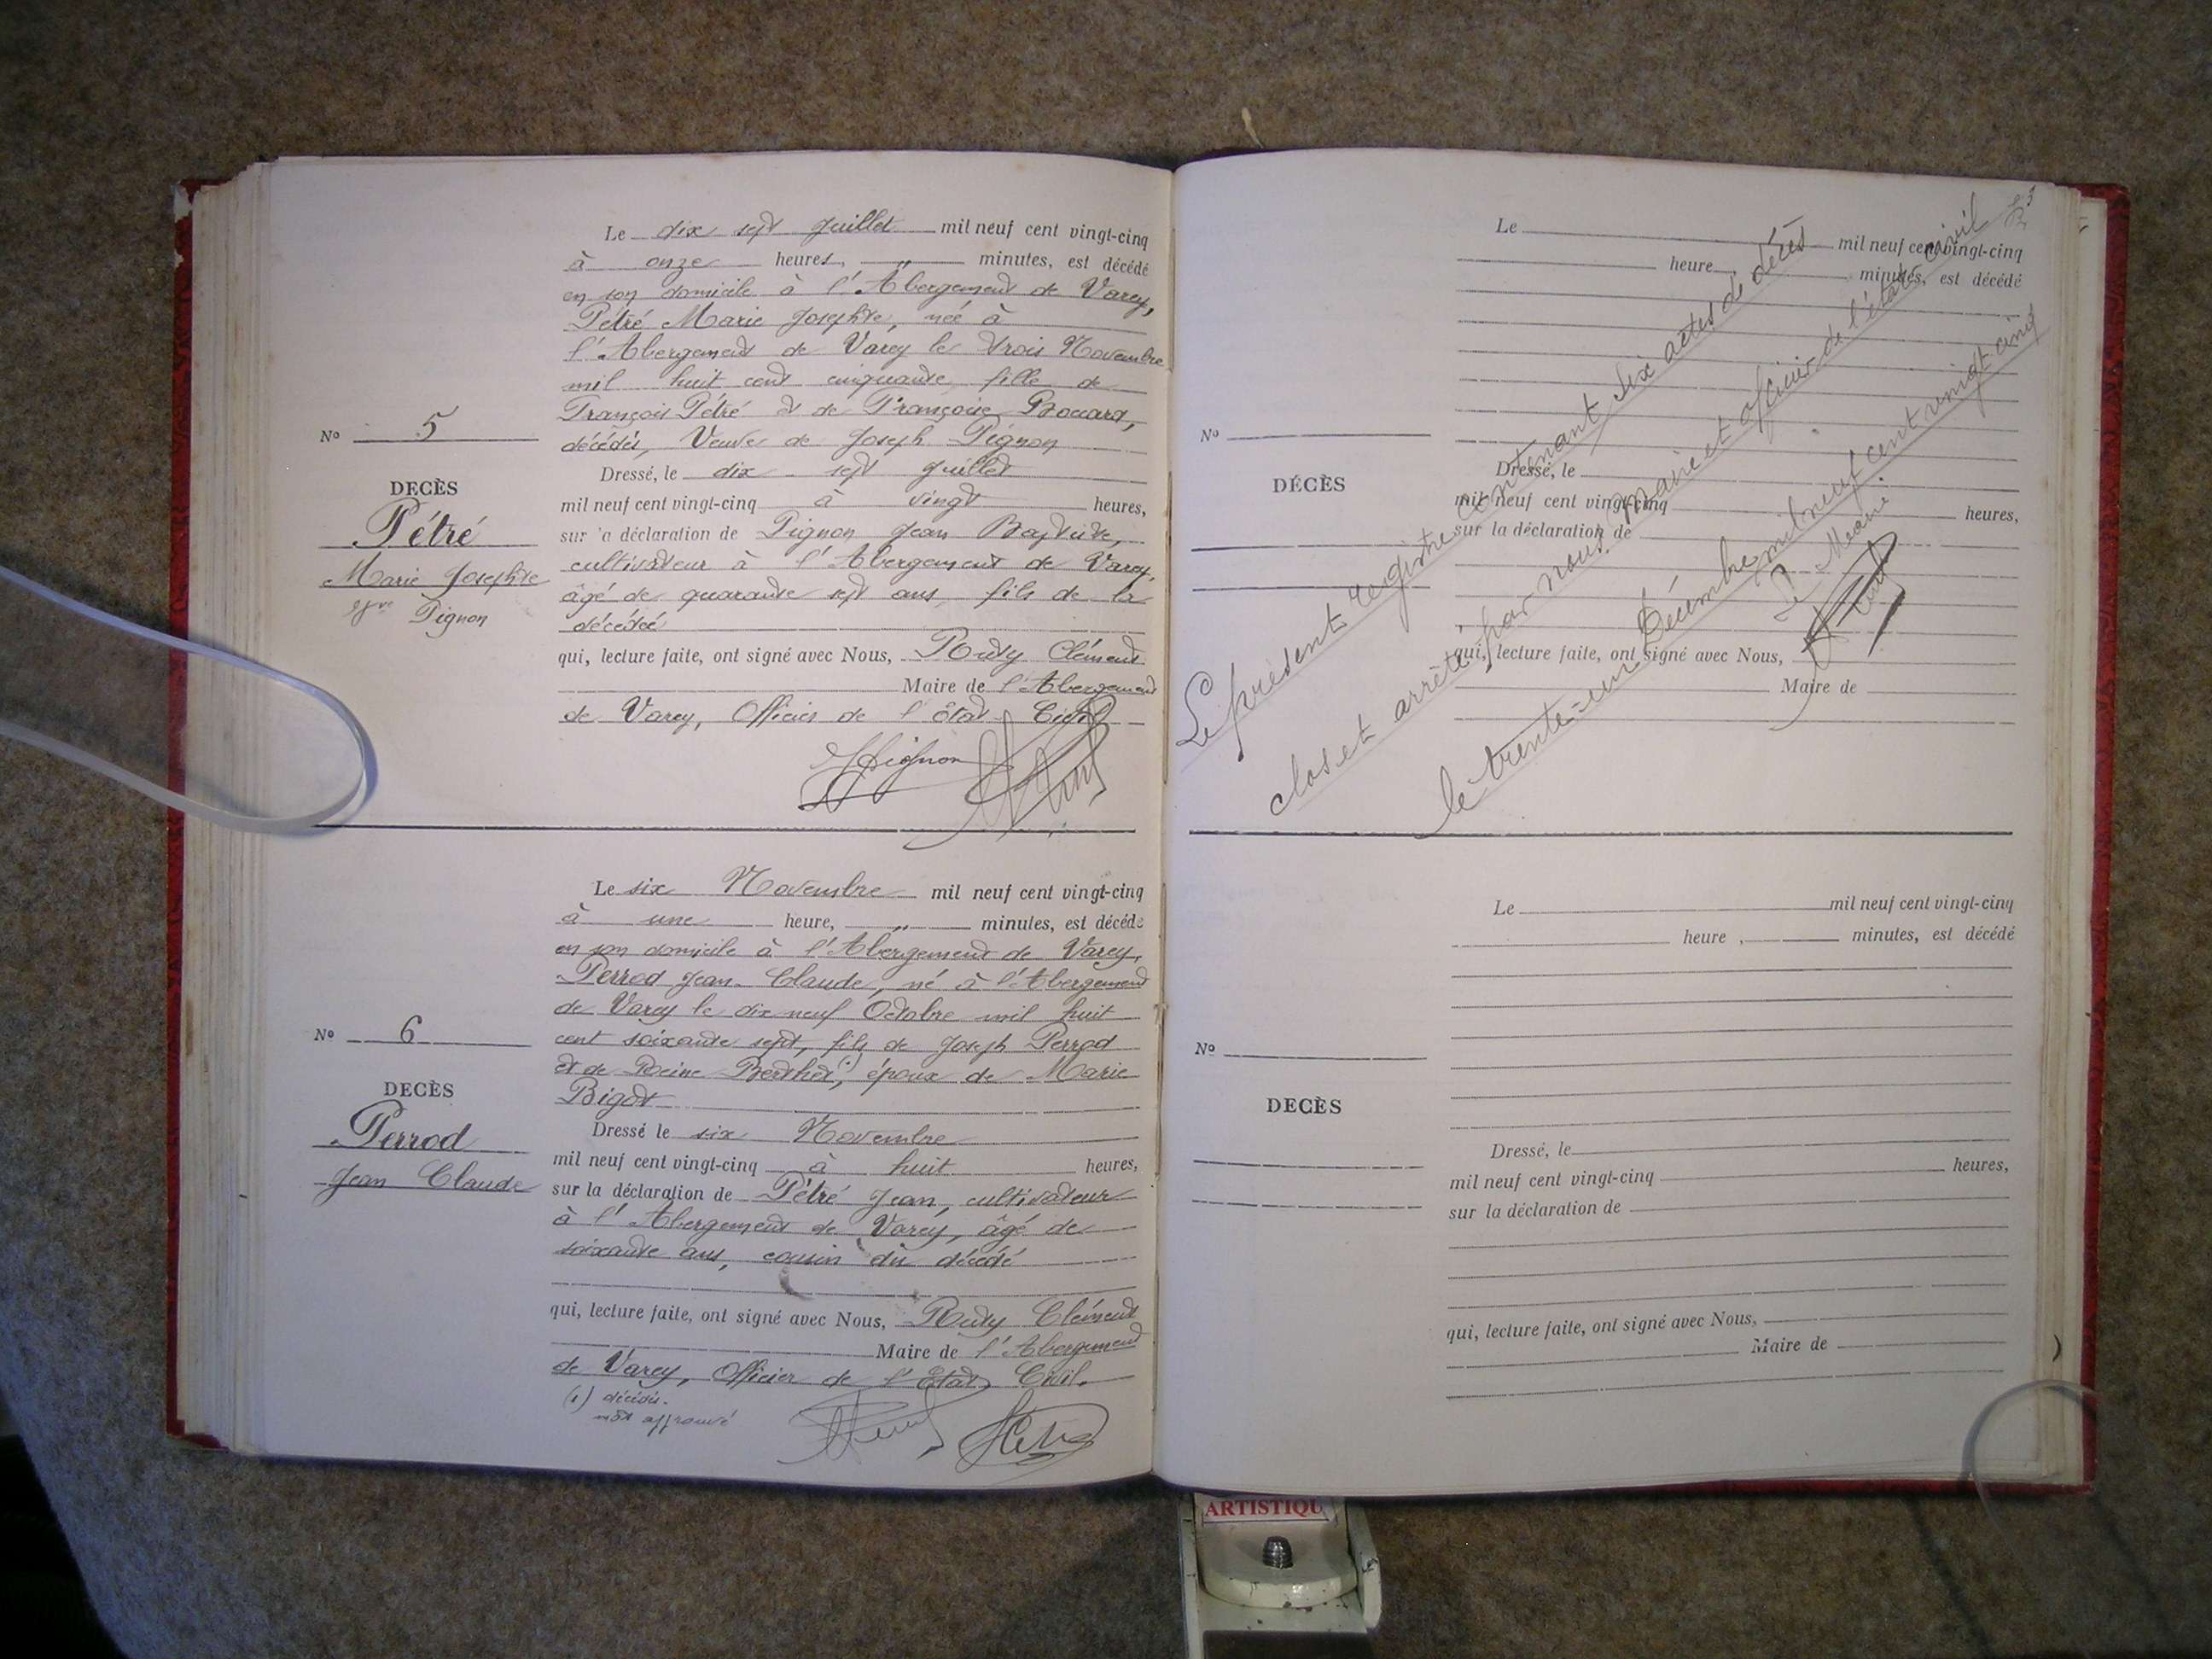 Le dix sept Juillet mil neuf cent vingt-cinq
à onze heures, " minutes, est décédé
en son domicile à l'Abergement de Varey,
Pétré Marie Josephte, née à
l'Abergement de Varey le trois Novembre
mil huit cent cinquante, fille de
François Pétré et de Françoise Bouvard,
décédés, Veuve de Joseph Pignon
Nº 5
DECÈS
Pétré
Marie Josephte
Vve Pignon
Dressé, le dix sept Juillet
mil neuf cent vingt-cinq à vingt heures,
sur la déclaration de Pignon Jean Baptiste,
cultivateur à l'Abergement de Varey,
âgé de quarante sept ans, fils de la
décédée
qui, lecture faite, ont signé avec Nous, Ruty Clément
Maire de l'Abergement
de Varey, Officier de l'Etat Civil
Pignon
Le six Novembre mil neuf cent vingt-cinq
à une heure, " minutes, est décédé
en son domicile à l'Abergement de Varey,
Perrod Jean-Claude, né à l'Abergement
de Varey le dix neuf Octobre mil huit
cent soixante sept, fils de Joseph Perrod
et de Reine Berthet (1), époux de Marie
Bigot
Nº 6
DECÈS
Perrod
Jean Claude
Dressé le six Novembre
mil neuf cent vingt-cinq à huit heures,
sur la déclaration de Pétré Jean, cultivateur
à l'Abergement de Varey, âgé de
soixante ans, cousin du décédé
qui, lecture faite, ont signé avec Nous, Ruty Clément
Maire de l'Abergement
de Varey, Officier de l'Etat Civil.
(1) décédés.
mot approuvé
Le mil neuf cent vingt-cinq
heure minutes, est décédé
Nº
DÉCÈS
Dressé, le
mil neuf cent vingt-cinq heures,
sur la déclaration de
qui, lecture faite, ont signé avec Nous,
Maire de
Le présent registre contenant six actes de décès
clos et arrêté par nous maire et officier de l'état civil
le trente-un Décembre mil neuf cent vingt cinq
Le Maire
Le mil neuf cent vingt-cinq
heure , minutes, est décédé
Nº
DECÈS
Dressé, le
mil neuf cent vingt-cinq heures,
sur la déclaration de
qui, lecture faite, ont signé avec Nous,
Maire de
ARTISTIQU